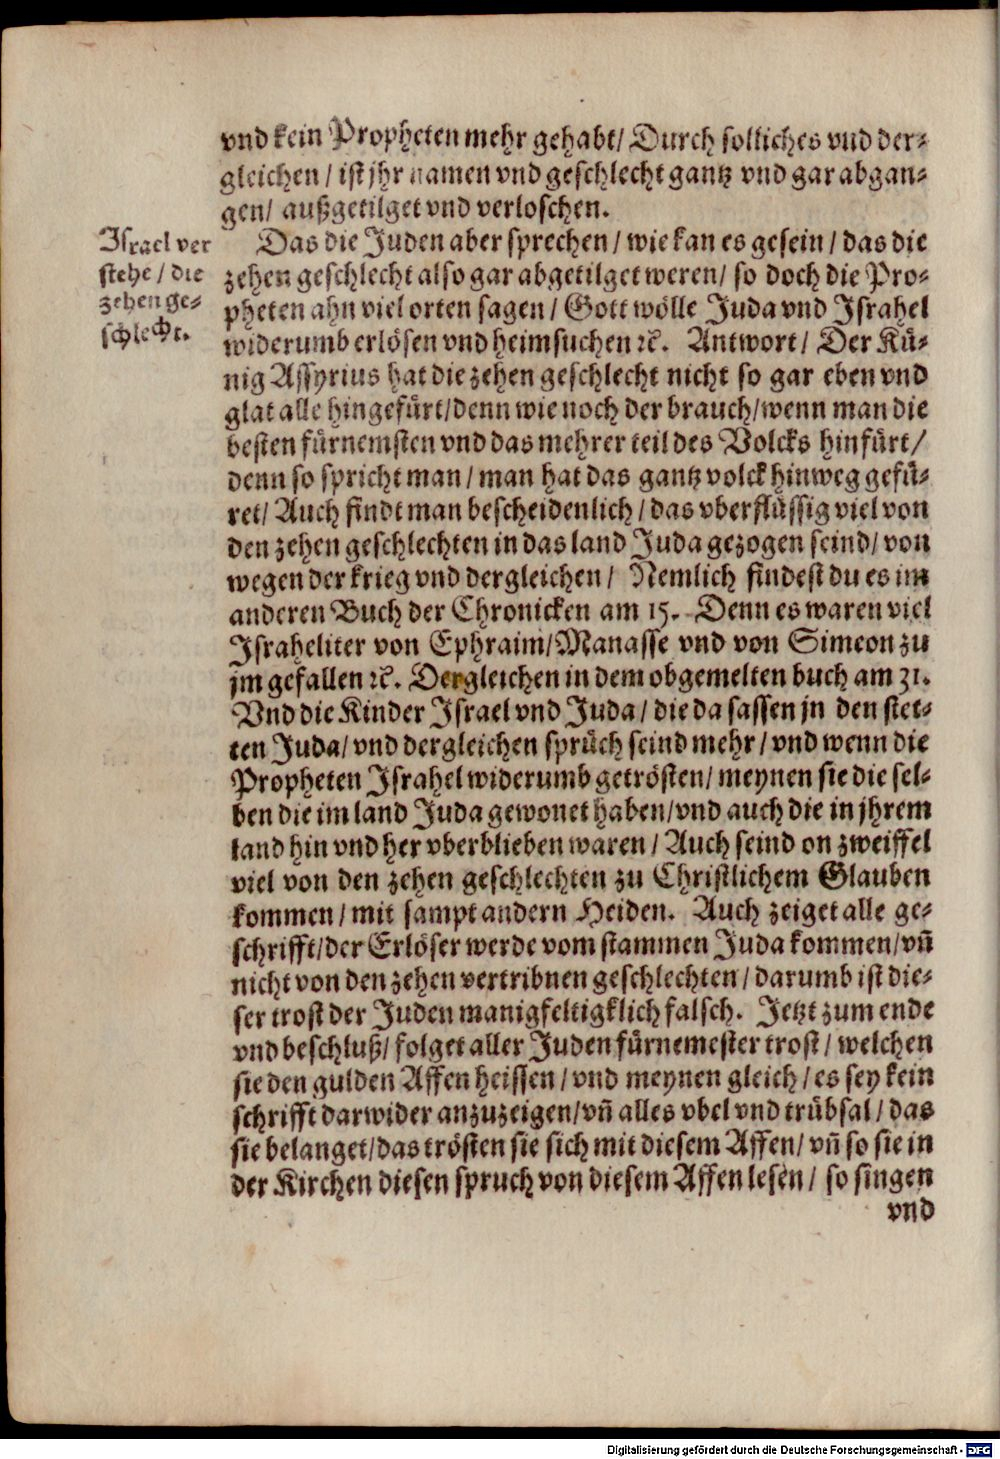 vnd kein Propheten mehr gehabt/ Durch solliches vnd der-
gleichen / ist jhr namen vnd geschlecht gantz vnd gar abgan-
gen/ außgetilget vnd verloschen.
Israel ver
stehe / die
zehen ge-
schlecht.
Das die Juden aber sprechen / wie kan es gesein / das die
zehen geschlecht also gar abgetilget weren/ so doch die Pro-
pheten ahn viel orten sagen / Gott wölle Juda vnd Israhel
widerumb erlösen vnd heimsuchen ꝛc. Antwort / Der Kü-
nig Assyrius hat die zehen geschlecht nicht so gar eben vnd
glat alle hingefürt/denn wie noch der brauch/wenn man die
besten fürnemsten vnd das mehrer teil des Volcks hinfürt/
denn so spricht man / man hat das gantz volck hinweg gefü-
ret/ Auch findt man bescheidenlich / das vberflüssig viel von
den zehen geschlechten in das land Juda gezogen seind/ von
wegen der krieg vnd dergleichen / Nemlich findest du es im
anderen Buch der Chronicken am 15. Denn es waren viel
Israheliter von Ephraim/Manasse vnd von Simeon zu
jm gefallen ꝛc. Dergleichen in dem obgemelten buch am 31.
Vnd die Kinder Israel vnd Juda / die da sassen jn den stet-
ten Juda/ vnd dergleichen sprüch seind mehr / vnd wenn die
Propheten Israhel widerumb getrösten/ meynen sie die sel-
ben die im land Juda gewonet haben/vnd auch die in jhrem
land hin vnd her vberblieben waren / Auch seind on zweiffel
viel von den zehen geschlechten zu Christlichem Glauben
kommen / mit sampt andern Heiden. Auch zeiget alle ge-
schrifft/der Erlöser werde vom stammen Juda kommen/vñ
nicht von den zehen vertribnen geschlechten / darumb ist die-
ser trost der Juden manigfeltigklich falsch. Jetzt zum ende
vnd beschluß/ folget aller Juden fürnemester trost / welchen
sie den gulden Affen heissen / vnd meynen gleich / es sey kein
schrifft darwider anzuzeigen/vñ alles vbel vnd trübsal / das
sie belanget/das trösten sie sich mit diesem Affen/ vñ so sie in
der Kirchen diesen spruch von diesem Affen lesen / so singen
vnd
Digitalisierung gefördert durch die Deutsche Forschungsgemeinschaft - DFG